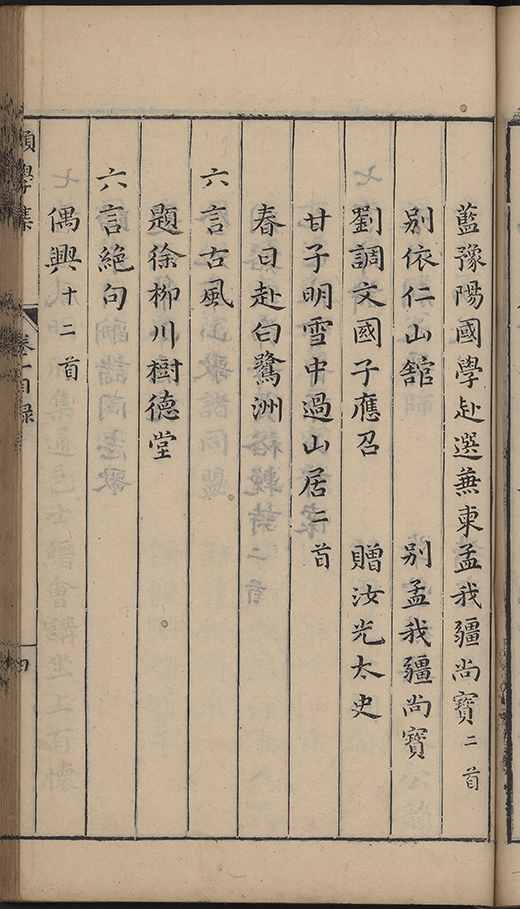 藍豫陽國學赴選蕪柬孟我疆尚寶二首
別依仁山舘　別孟我疆尚寶
劉調文國子應召　贈汝光太史
甘子明雪中過山居二首
春日赴白鷺洲
六言古風
題徐柳川樹德堂
六言絕句
偶興十二首
願學集　卷一目錄　四